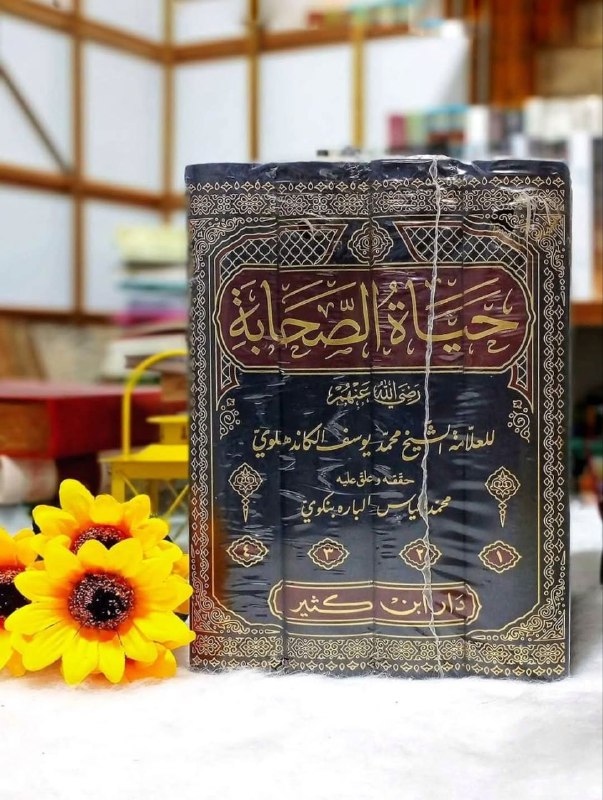 حَيَاةُ الصَّحَابَةِ
رَضِيَ اللهُ عَنْهُمْ
للعلامة الشيخ محمد يوسف الكاندهلويّ
حققه وعلق عليه
محمد إلياس الباره بنكوي
١ ٢ ٣ ٤
دار ابن كثير